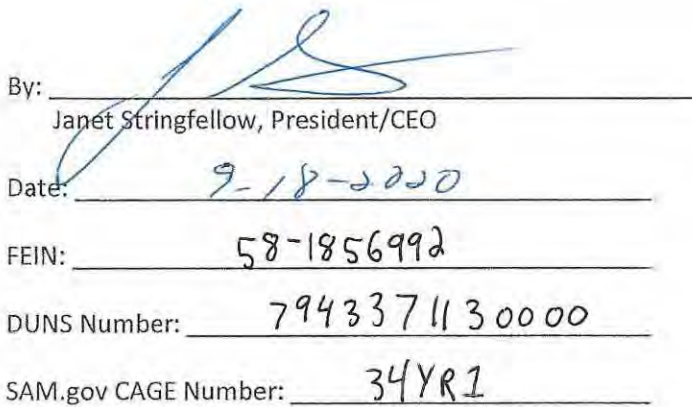 By:
Janet Stringfellow, President/CEO
Date: 9-18-2020
FEIN: 58-1856992
DUNS Number: 7943371130000
SAM.gov CAGE Number: 34YR1